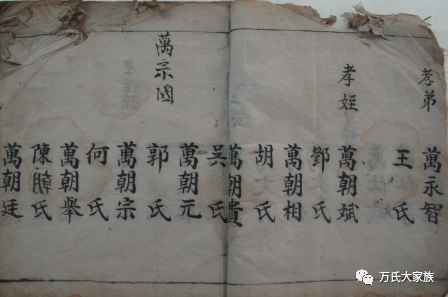 孝弟
萬永智
王氏
孝姪
萬朝斌
鄧氏
萬朝相
胡氏
萬朝貴
吳氏
萬朝元
郭氏
萬宗國
萬朝宗
何氏
萬朝舉
陳氏
萬朝廷
万氏大家族